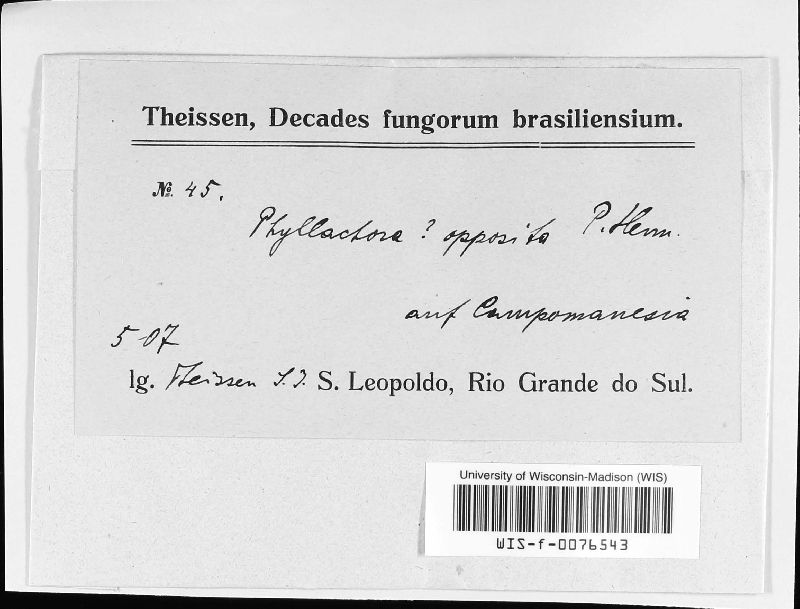 Theissen, Decades fungorum brasiliensium.
№ 45.
Phyllachora ? opposita P. Henn.
auf Campomanesia
5 07
lg. Theissen S.J. S. Leopoldo, Rio Grande do Sul.
University of Wisconsin-Madison (WIS)
WIS-f-0076543